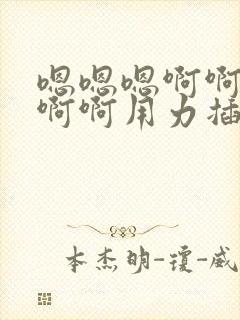 嗯嗯嗯啊啊
啊啊用力插
本杰明-琼-威